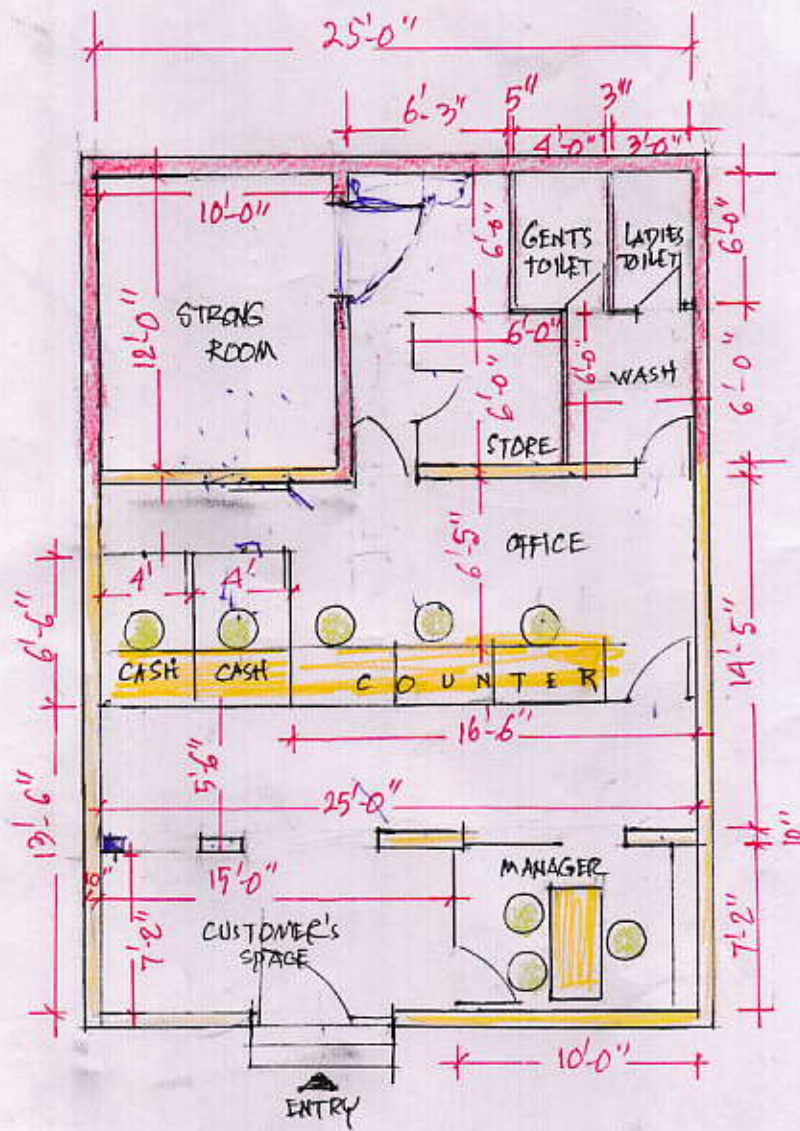 25'-0"
6'-3"
5"
3"
4'-0"
3'-0"
10'-0"
6'-9"
GENTS
TOILET
LADIES
TOILET
6'-0"
STRONG
ROOM
12'-0"
6'-0"
6'-0"
6'-0"
WASH
6'-0"
STORE
6'-5"
OFFICE
4'
4'
6'-6"
CASH
CASH
COUNTER
14'-5"
16'-6"
5'-9"
25'-0"
13'-6"
10"
MANAGER
15'-0"
7'-2"
CUSTOMER'S
SPACE
7'-2"
10'-0"
ENTRY